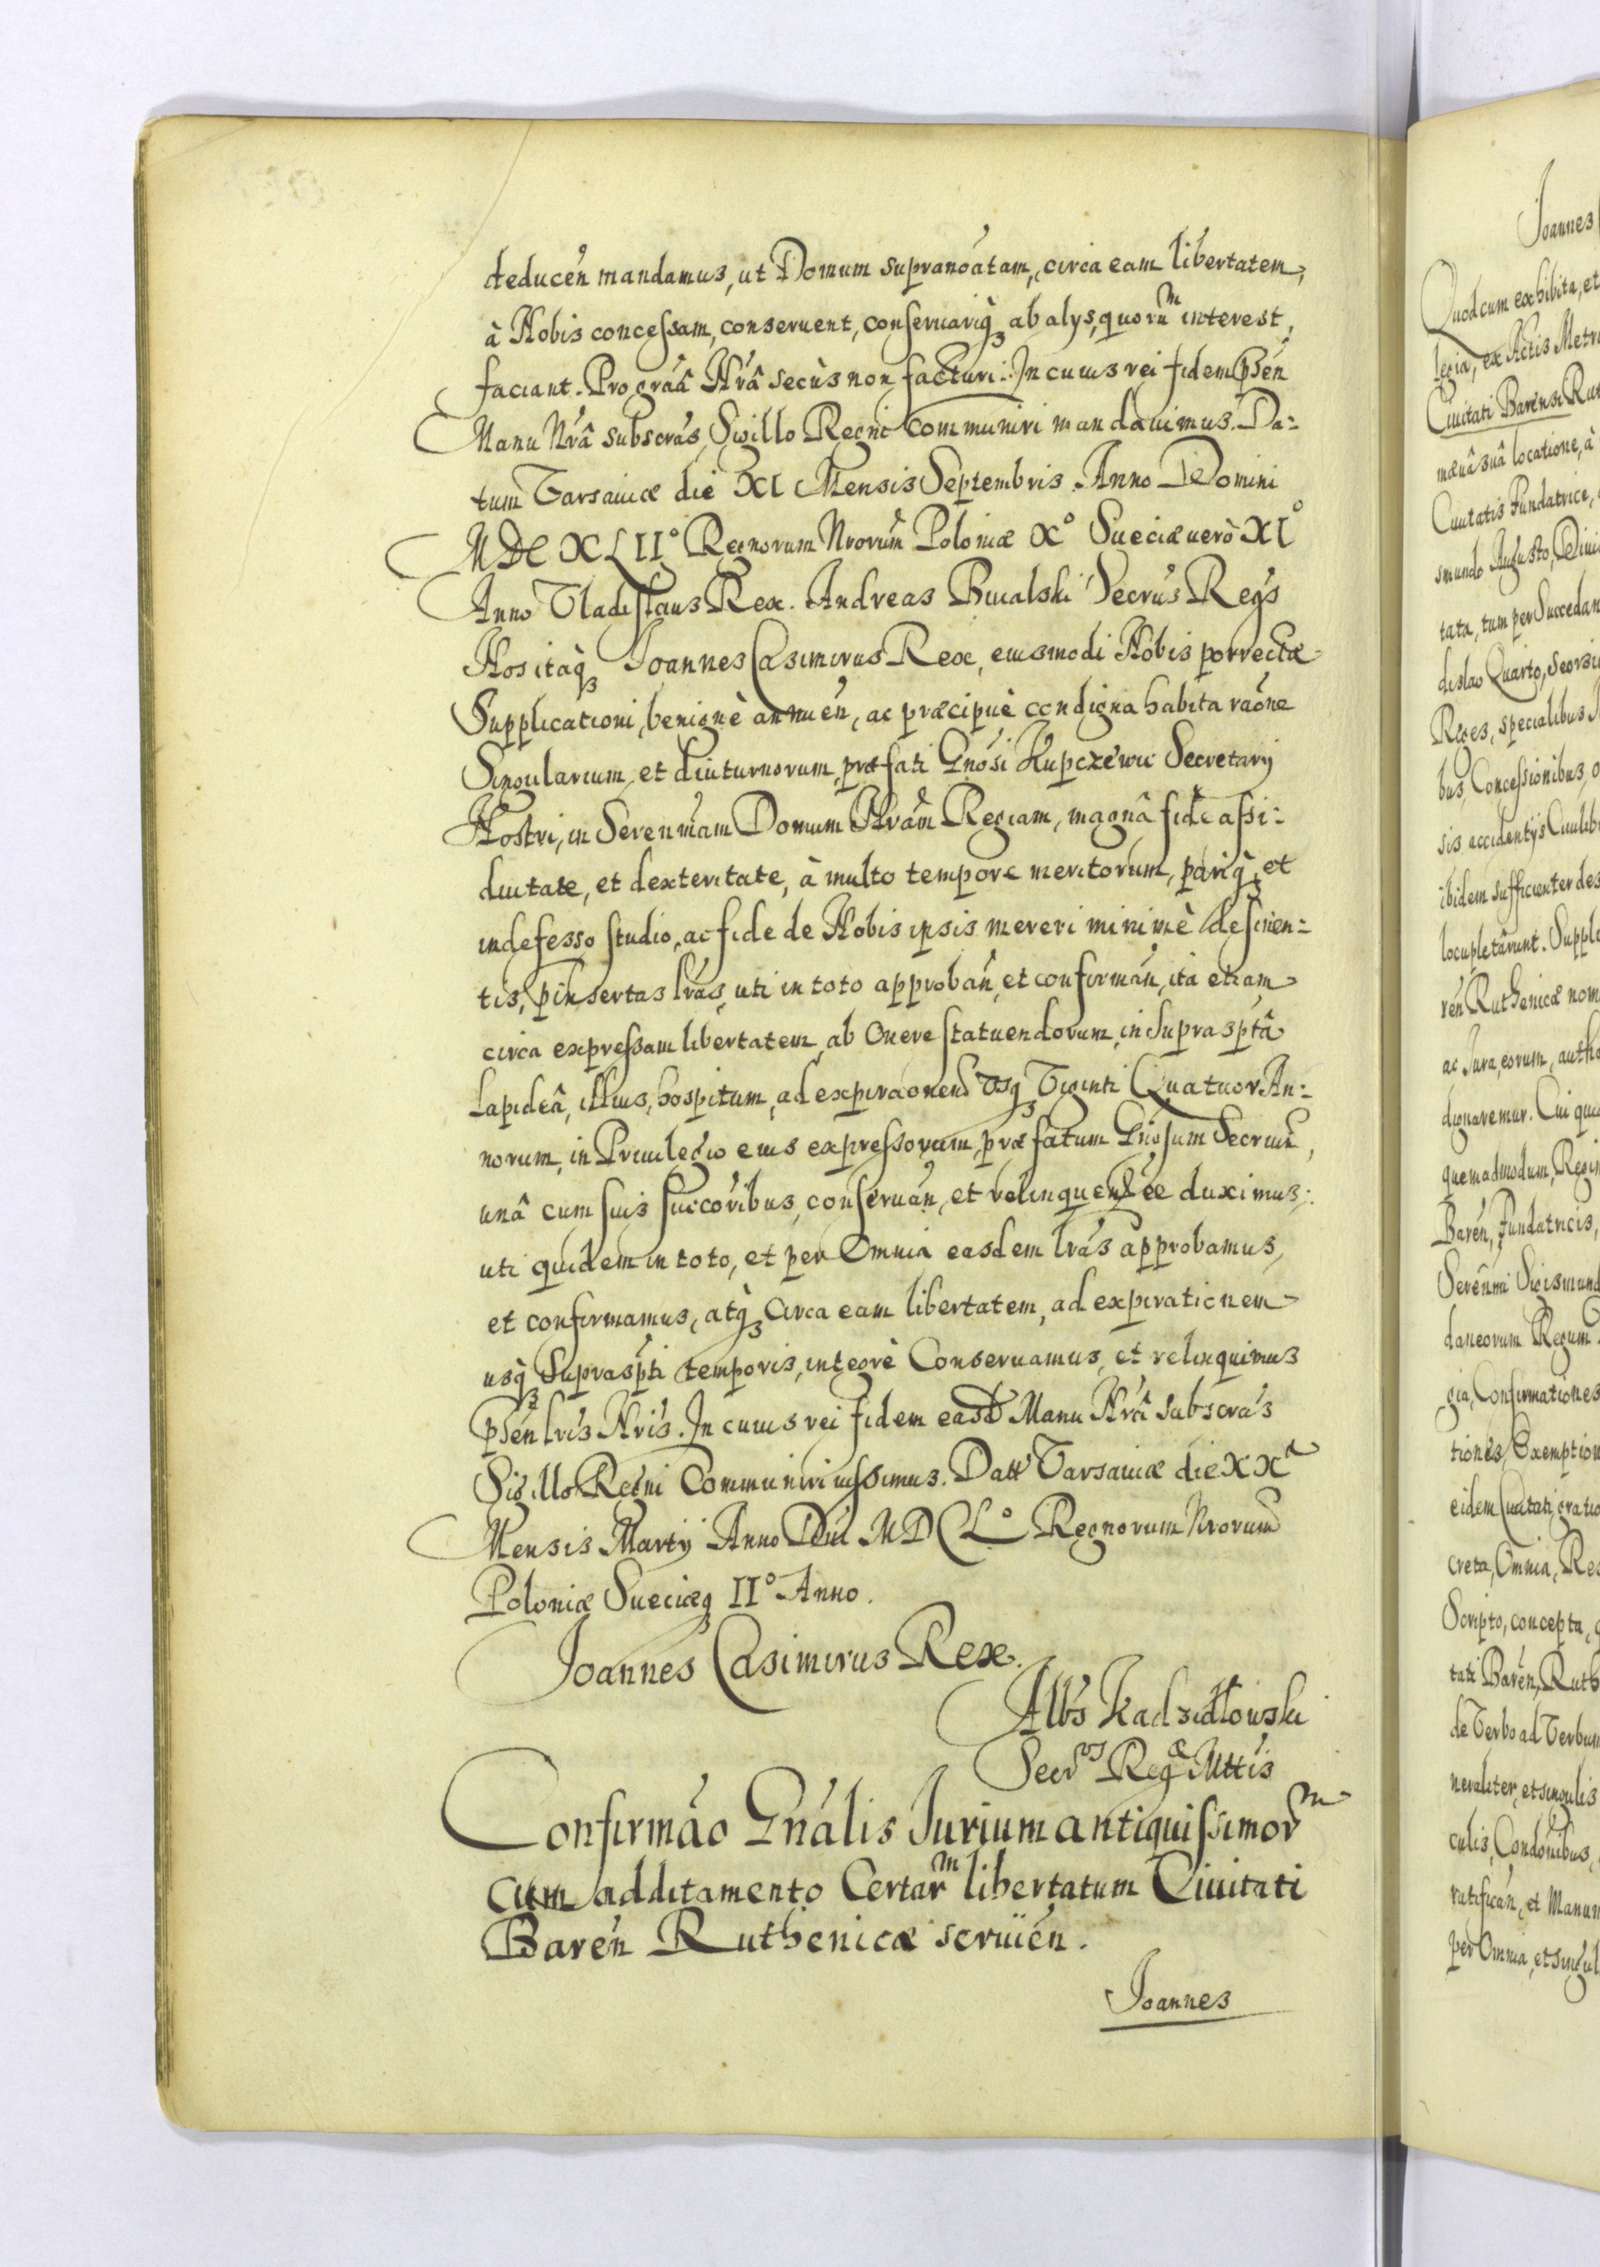 deducen̄ mandamus, ut Domum supranoatam, circa eam libertatem,
à Nobis concessam, conseruent, conseruariq3 ab alys, quorum interest,
faciant. Pro graâ Nrâ secùs non facturi. In cuius rei fidem pśen
Manu Nrâ subscras, Sigillo Regni communiri mandauimus. Da:
tum Varsauiæ die XI Mensis Septembris. Anno Domini
MDCXLIIº Regnorum Nrorum Poloniæ Xº Sueciæ uerò XIº
Anno Vladislaus Rex. Andreas Bucalski Secrus Regs
Nos itaq3 Joannes Casimirus Rex, eiusmodi Nobis porrectæ
Supplicationi, benignè annuen, ac præcipuè condigna habita raone
Singularium, et diuturnorum, præfati Gnosi Kupczewic Secretarij
Nostri, in Serenmam Domum Nram Regiam, magnâ fide assi:
duitate, et dexteritate, à multo tempore meritorum, pariq3 et
indefesso studio, ac fide de Nobis ipsis mereri minimè desinen:
tis, pinsertas lras, uti in toto approban, et confirman, ita etiam
circa expressam libertatem, ab Onere statuendorum, in supra sptâ
Lapideâ, illius, hospitum, ad expiraonem usq3 Viginti Quatuor An:
norum, in Priuilegio eius expressorum, præfatum Gnosum Secrum,
unâ cum suis succoribus, conseruan, et relinquend ee duximus:
uti quidem in toto, et per Omnia easdem lras approbamus,
et confirmamus, atq3 Circa eam libertatem, ad expirationem
usq3 Suprasp̄ti temporis, integrè Conseruamus, et relinquimus
pśen lris Nris. In cuius rei fidem easd Manu Nrâ subscras
Sigillo Regni Communiri iussimus. Datt Varsauiæ die XXa
Mensis Martij Anno Dni MDCLº Regnorum Nrorum
Poloniæ Sueciæq3 IIº Anno.
Joannes Casimirus Rex.
Albs Kadzidłowski
Secrus Regæ Mttis
Confirmao Gnalis Jurium antiquissimorm
cum additamento Certarm libertatum Ciuitati
Baren Ruthenicæ seruien.
Joannes
Joannes
Quod cum exhibita, et
legia, ex Actis Metr
Ciuitati Barensi Rut
mæuâ suâ locatione, à
Ciuitatis Fundatrice,
smundo Augusto, Diui
tata, tum per Succedan
dislao Quarto, seorsi
Reges, specialibus
bus, Concessionibus,
sis accidentijs Ciuilib
ibidem sufficienter des
locupletârunt. Supplic
ren Ruthenicæ nom
ac Jura, eorum, autho
dignaremur. Cui qui
quemadmodum, Regin
Baren, fundatricis,
Serenmi Sigismund
daneorum Regum
gia, Confirmationes
tiones, Exemption
eidem Ciuitati gratio
creta, Omnia, Re
Scripto, concepta,
tati Baren, Ruth
de Verbo ad Verbum
neraliter, et singulis
culis, Condonibus,
ratifican, et Manum
per Omnia, et singul